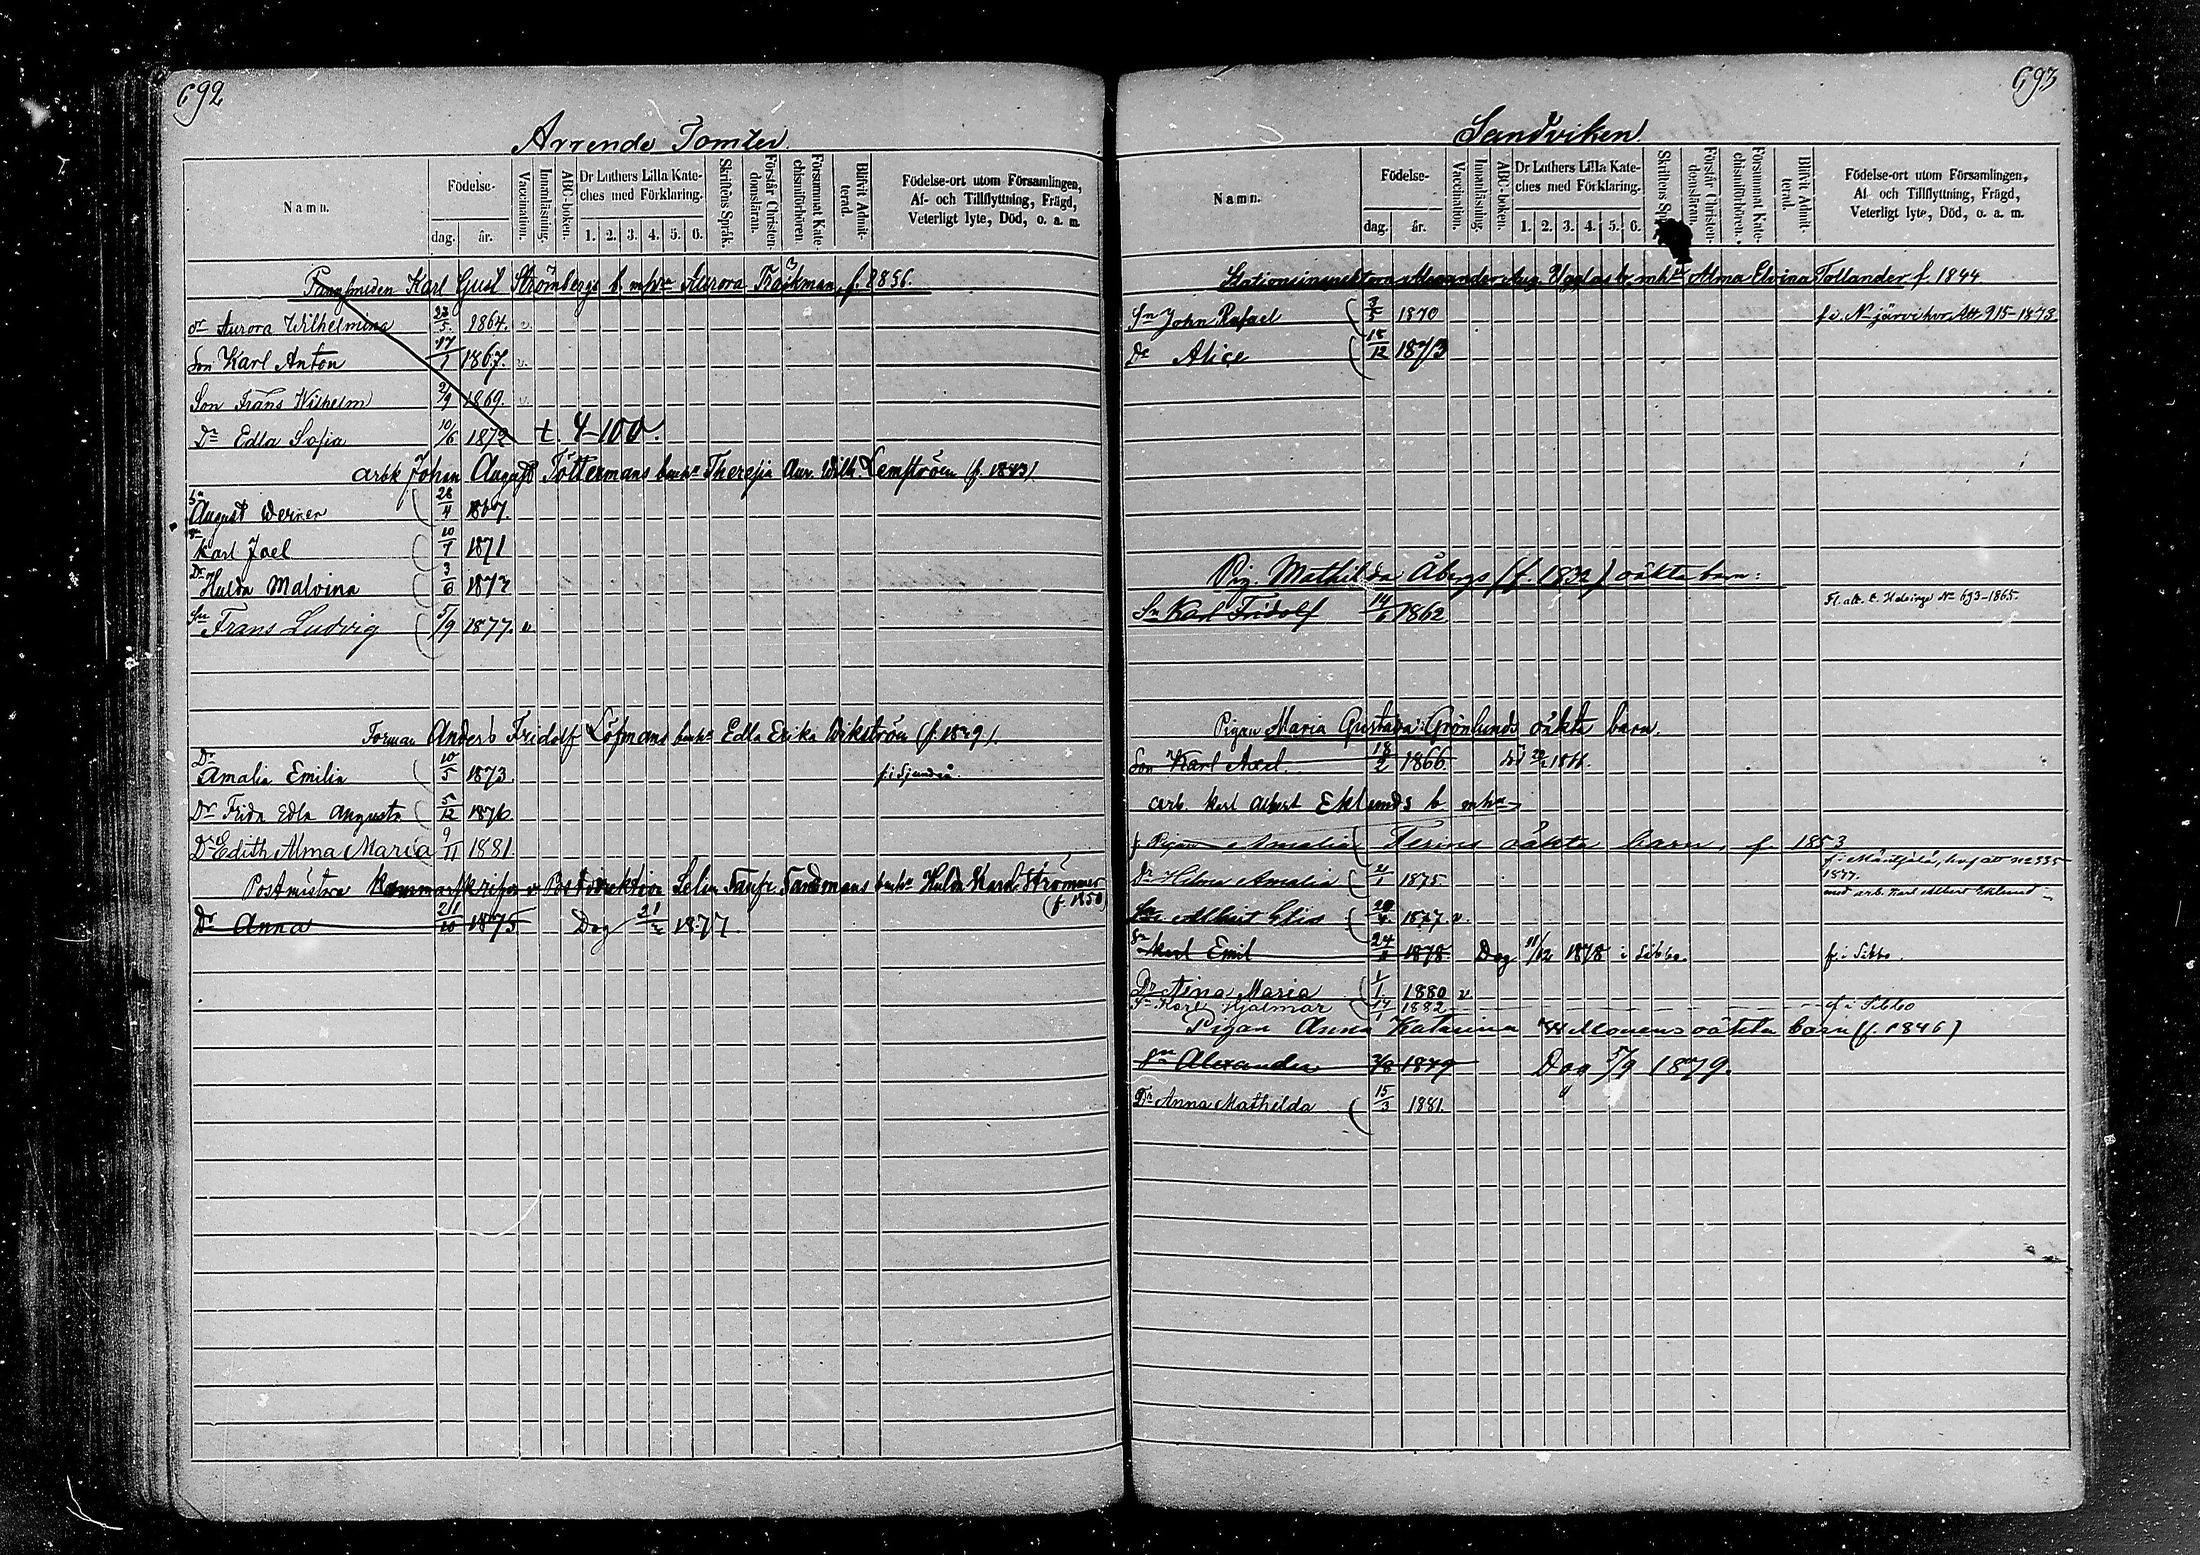 692
Arrende Tomter.
Namn.
Födelse-
dag. år.
Vaccination.
Innanläsning.
ABC-boken.
Dr Luthers Lilla Kate-
ches med Förklaring.
1. 2. 3. 4. 5. 6.
Skriftens Språk.
Förstår Christen-
domsläran.
Försummat Kate-
chismiförhören.
Blifvit Admit-
terad.
Födelse-ort utom Församlingen,
Af- och Tillflyttning, Frägd,
Veterligt lyte, Död, o. a. m.
Karl Gust Strömbergs b. m. hu Aurora Träskman, f. 1836.
dr Aurora Wilhelmina 23/5. 1864. v.
Son Karl Anton 17/1 1867. v.
Son Frans Wilhelm 2/9 1869. v.
Dr Edla Sofia 10/6 1872 t. 4-100.
arbk Johan August Töttermans bmhu Theresia Aur. Wilh. Lemström (f. 1843).
Sn August Werner 28/4 1867.
Sn Karl Joel 10/7 1871
Dr Hulda Malvina 3/6 1873
Sn Frans Ludvig 5/9 1877. v
Forman Anders Fridolf Löfmans bmhu Edla Erika Wikström (f. 1849).
Dr Amalia Emilia 10/5 1873. f. i Sjundeå.
Dr Frida Edla Augusta 5/12 1876
Dr Edith Alma Maria 9/11 1881
Postmästare Selim Sandmans bmhu Hulda Karol. Strömmer
(f. 1850)
Dr Anna 1875 Dog 21/2 1877.
693
Sandviken.
Namn.
Födelse-
dag. år.
Vaccination.
Innanläsning.
ABC-boken.
Dr Luthers Lilla Kate-
ches med Förklaring.
1. 2. 3. 4. 5. 6.
Skriftens
Förstår Christen-
domsläran.
Försummat Kate-
chismiförhören.
Blifvit Admit-
terad.
Födelse-ort utom Församlingen,
Af- och Tillflyttning, Frägd,
Veterligt lyte, Död, o. a. m.
Stationsinspektorn Alexander Aug. Ugglas b. mhu Alma Elvina Tollander f. 1844
Sn John Rafael 1870 f. i N-järvi hvr Att 915-1873
Dr Alice 18/12 1873
Pig. Mathilda Åbergs (f. 1832) oäkta barn:
Sn Karl Fridolf 14/6 1862 Fl. att. t. Helsinge No 693-1865.
Pigan Maria Gustava Grönlunds oäkta barn.
Son Karl Axel. 18/2 1866
arb. Karl Albert Eklunds b. mhu
f Pigan Amalia oäkta barn. f 1853
f. i Mäntsälä, hvf att n 2335
1877.
med arb. Karl Albert Eklund
Dr Hilma Amalia 1875.
Sn Albert Elis 1877. v.
Sn Karl Emil 1878 Dog 11/12 1878 i Sibbo. f. i Sibbo.
Dr Nina Maria 1/1 1880 v
Sn Karl Hjalmar 17/1 1882 f i Sibbo
Pigan Anna Katarina oäkta barn (f. 1846)
Sn Alexander 1879 Dog 5/9 1879.
Dr Anna Mathilda 15/3 1881.